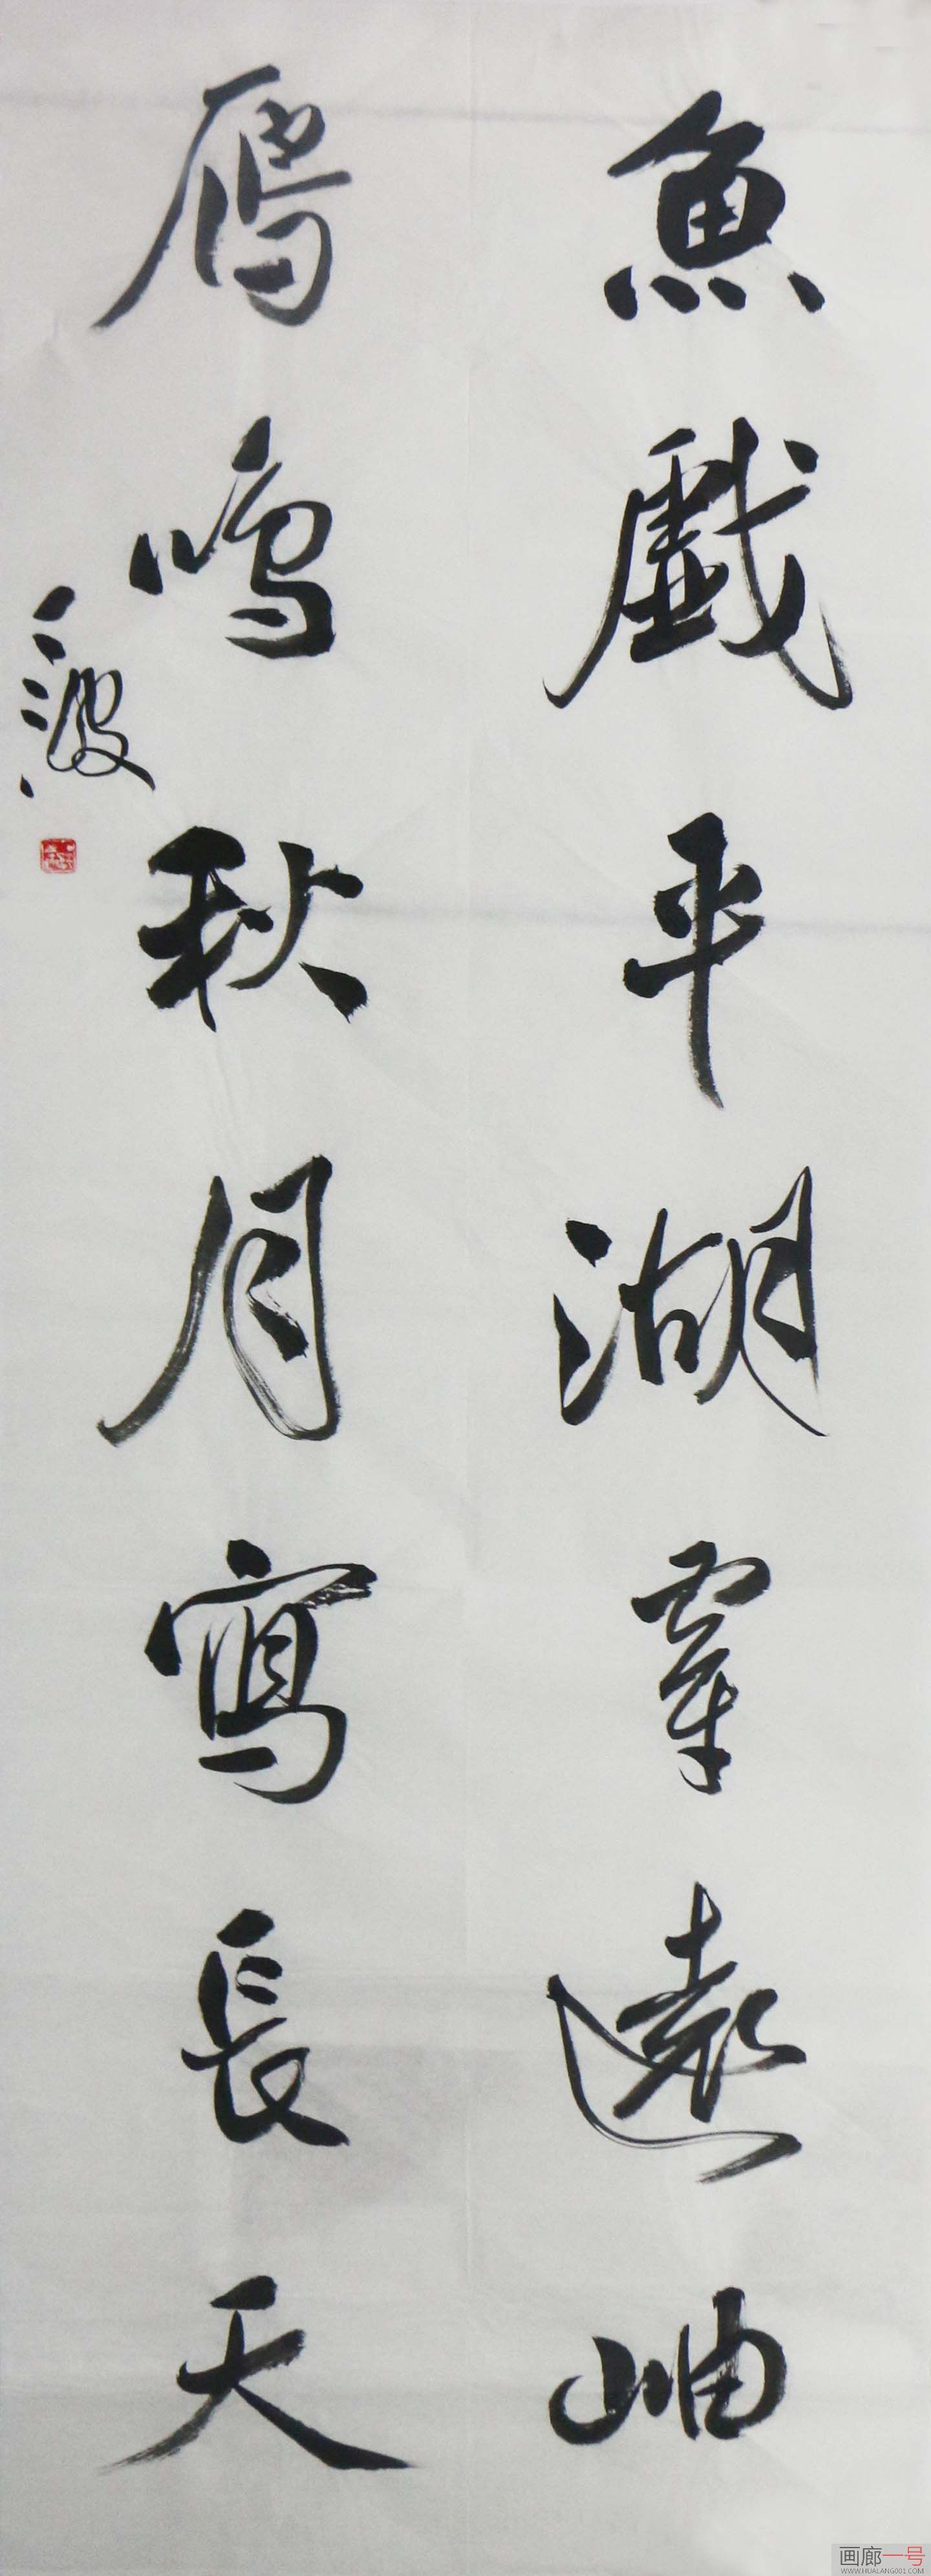 魚戲平湖穿遠岫
鴈鳴秋月寫長天
三波
画廊一号
WWW.HUALANG001.COM